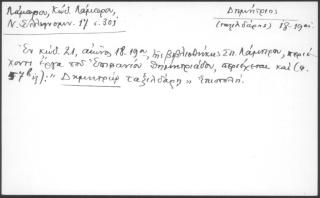 Λάμπρου, Κωδ. Λάμπρου,
Ν. Ελληνομν. 17 σ. 301
Δημήτριος
(ταξιλδάρης) 18-19ος
Ἐν κώδ. 21, αἰῶνος 18-19ου, τῆς βιβλιοθήκης Σπ. Λάμπρου, περιέ-
χοντι ἔργα τοῦ Ἐπιφανίου Δημητριάδου, περιέχεται καὶ (φ.
57β ἑξ): "Δημητρίῳ ταξιλδάρῃ" ἐπιστολή.